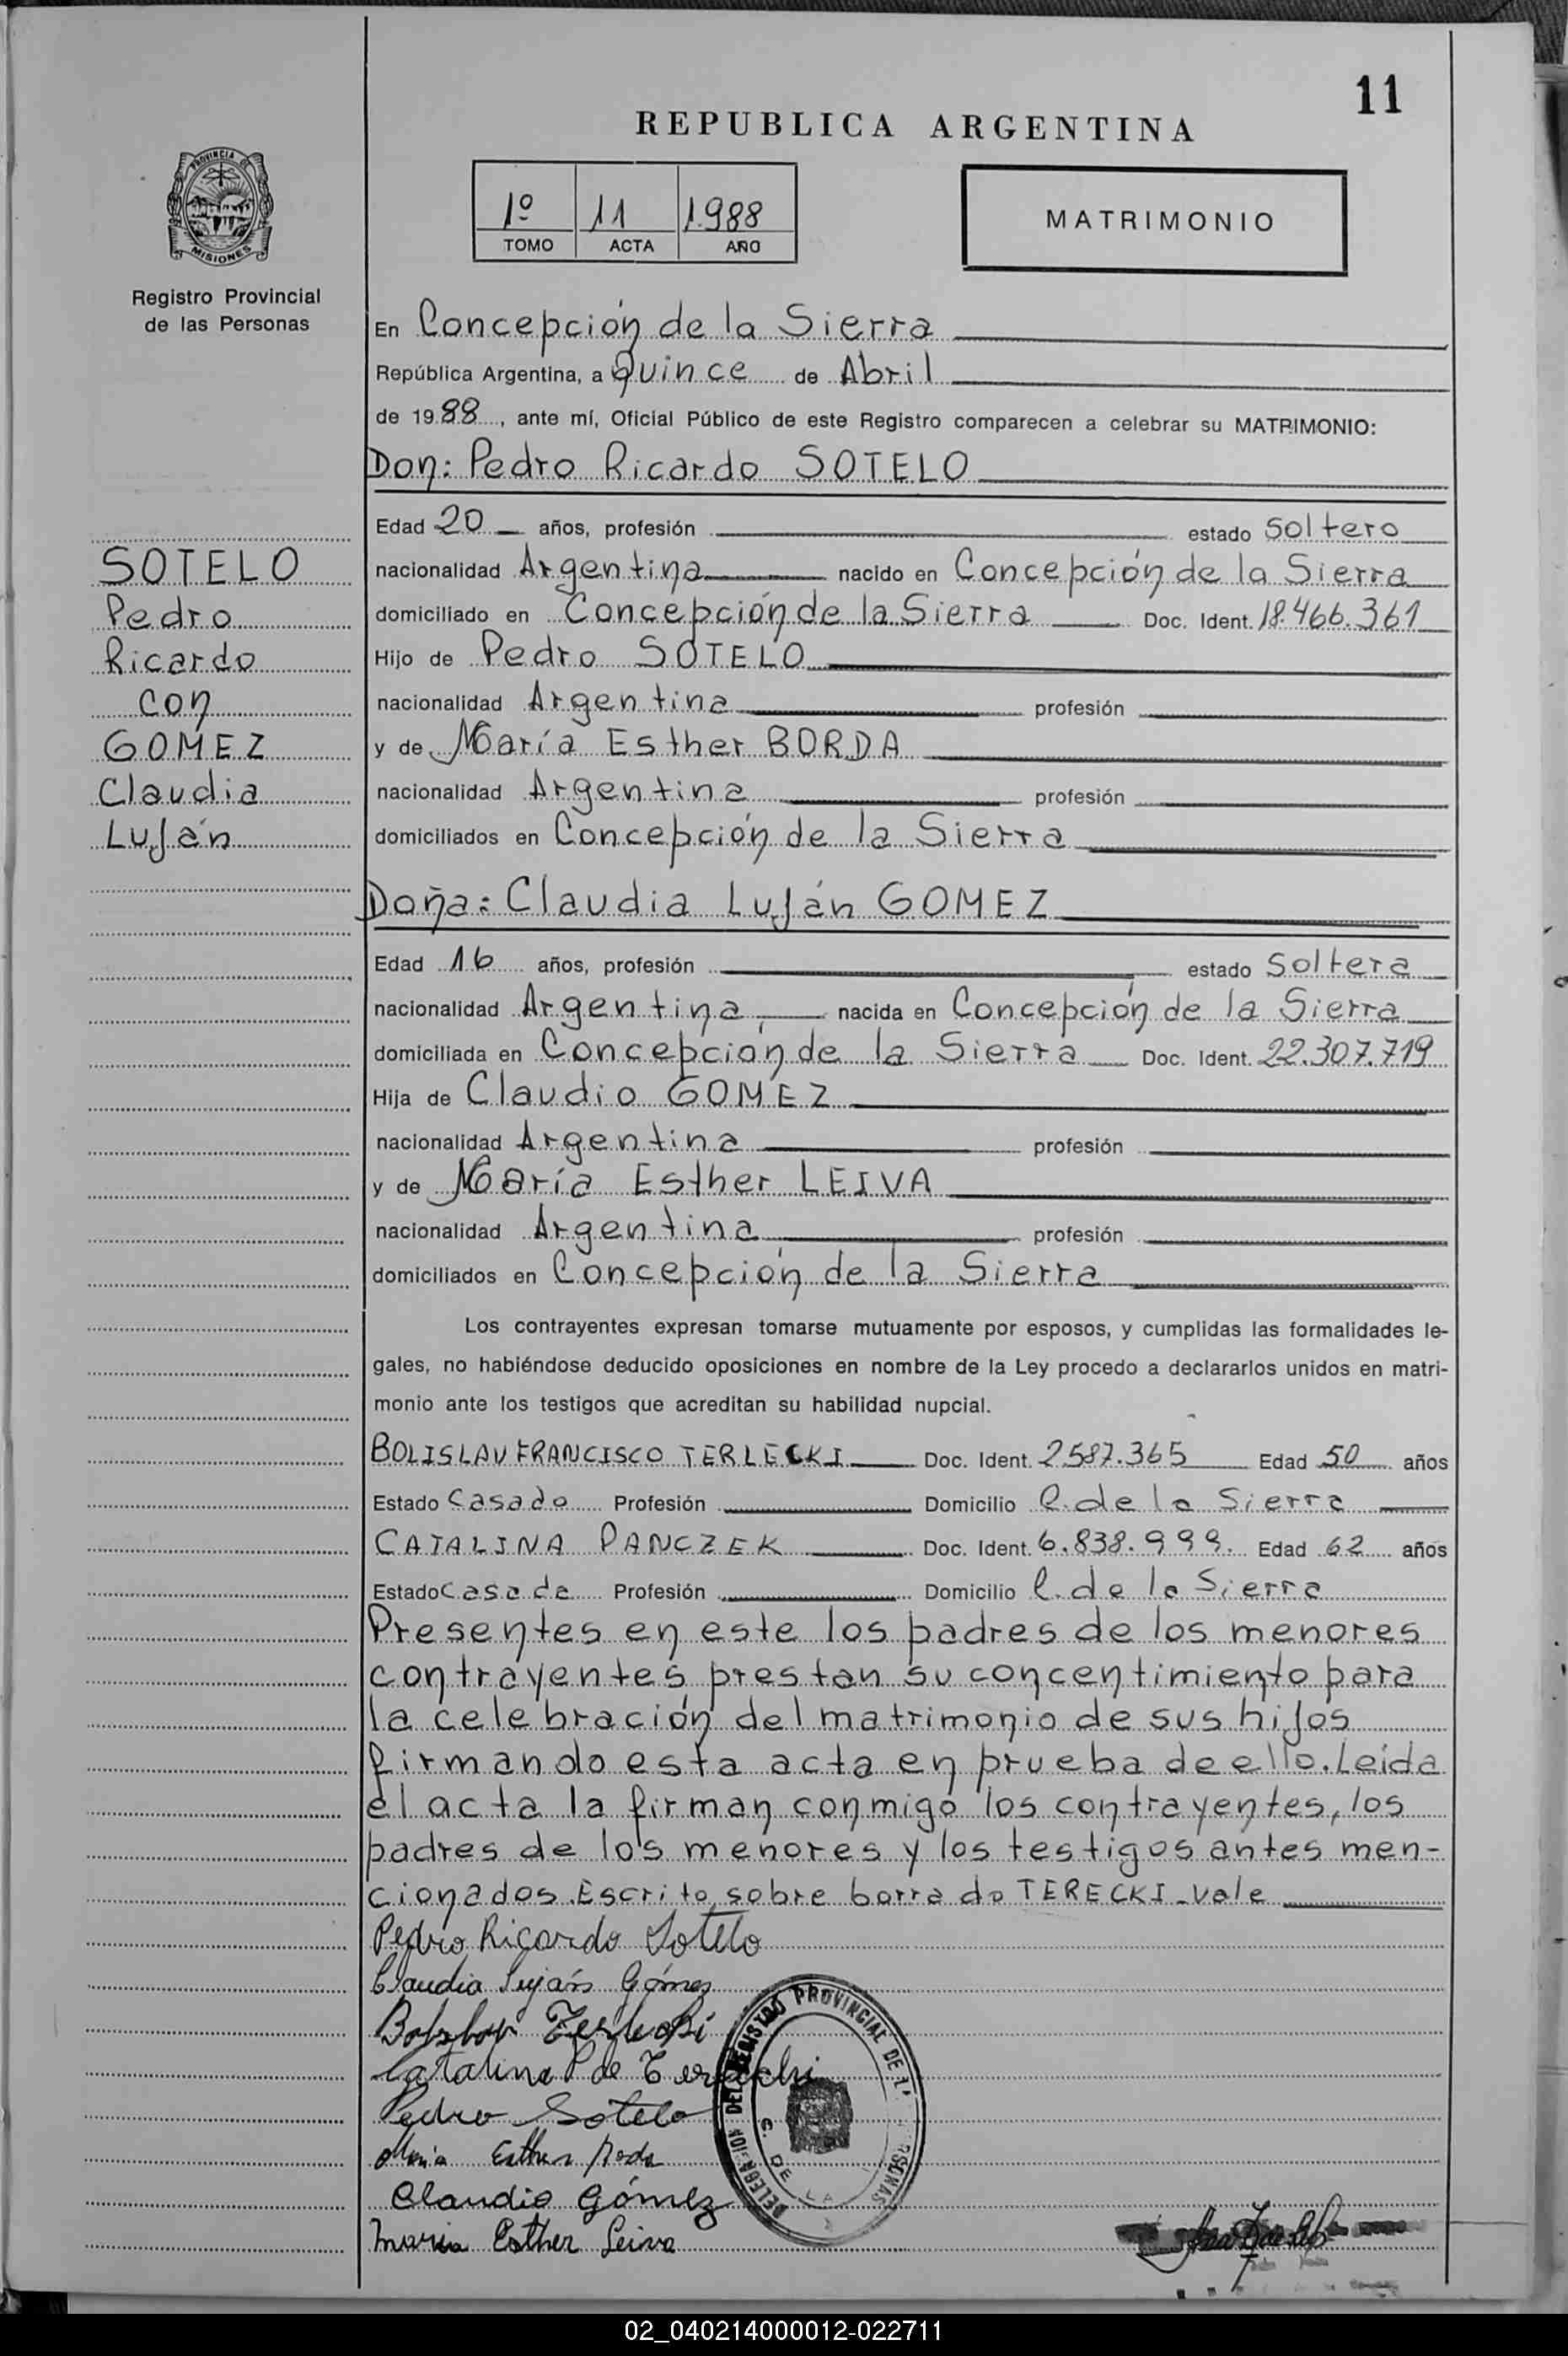 11
REPUBLICA ARGENTINA
1º 11 1.988
TOMO ACTA AÑO
MATRIMONIO
PROVINCIA DE
MISIONES
Registro Provincial
de las Personas
SOTELO
Pedro
Ricardo
con
GOMEZ
Claudia
Luján
En Concepción de la Sierra
República Argentina, a Quince de Abril
de 1988, ante mí, Oficial Público de este Registro comparecen a celebrar su MATRIMONIO:
Don: Pedro Ricardo SOTELO
Edad 20 años, profesión estado soltero
nacionalidad Argentina nacido en Concepción de la Sierra
domiciliado en Concepción de la Sierra Doc. Ident. 18.466.361
Hijo de Pedro SOTELO
nacionalidad Argentina profesión
y de María Esther BORDA
nacionalidad Argentina profesión
domiciliados en Concepción de la Sierra
Doña: Claudia Luján GOMEZ
Edad 16 años, profesión estado Soltera
nacionalidad Argentina nacida en Concepción de la Sierra
domiciliada en Concepción de la Sierra Doc. Ident. 22.307.719
Hija de Claudio GOMEZ
nacionalidad Argentina profesión
y de María Esther LEIVA
nacionalidad Argentina profesión
domiciliados en Concepción de la Sierra
Los contrayentes expresan tomarse mutuamente por esposos, y cumplidas las formalidades le-
gales, no habiéndose deducido oposiciones en nombre de la Ley procedo a declararlos unidos en matri-
monio ante los testigos que acreditan su habilidad nupcial.
BOLISLAV FRANCISCO TERLECKI Doc. Ident. 2587.365 Edad 50 años
Estado Casado Profesión Domicilio C. de la Sierra
CATALINA PANCZEK Doc. Ident. 6.838.999. Edad 62 años
Estado Casada Profesión Domicilio C. de la Sierra
Presentes en este los padres de los menores
contrayentes prestan su concentimiento para
la celebración del matrimonio de sus hijos
firmando esta acta en prueba de ello. Leida
el acta la firman conmigo los contrayentes, los
padres de los menores y los testigos antes men-
cionados. Escrito sobre borrado TERECKI-vale
Pedro Ricardo Sotelo
Claudia Luján Gómez
Catalina P de
Pedro Sotelo
Maria Esther
Claudio Gómez
Maria Esther Leiva
DELEGACION DEL REGISTRO PROVINCIAL DE
C. DE LA
02_040214000012-022711